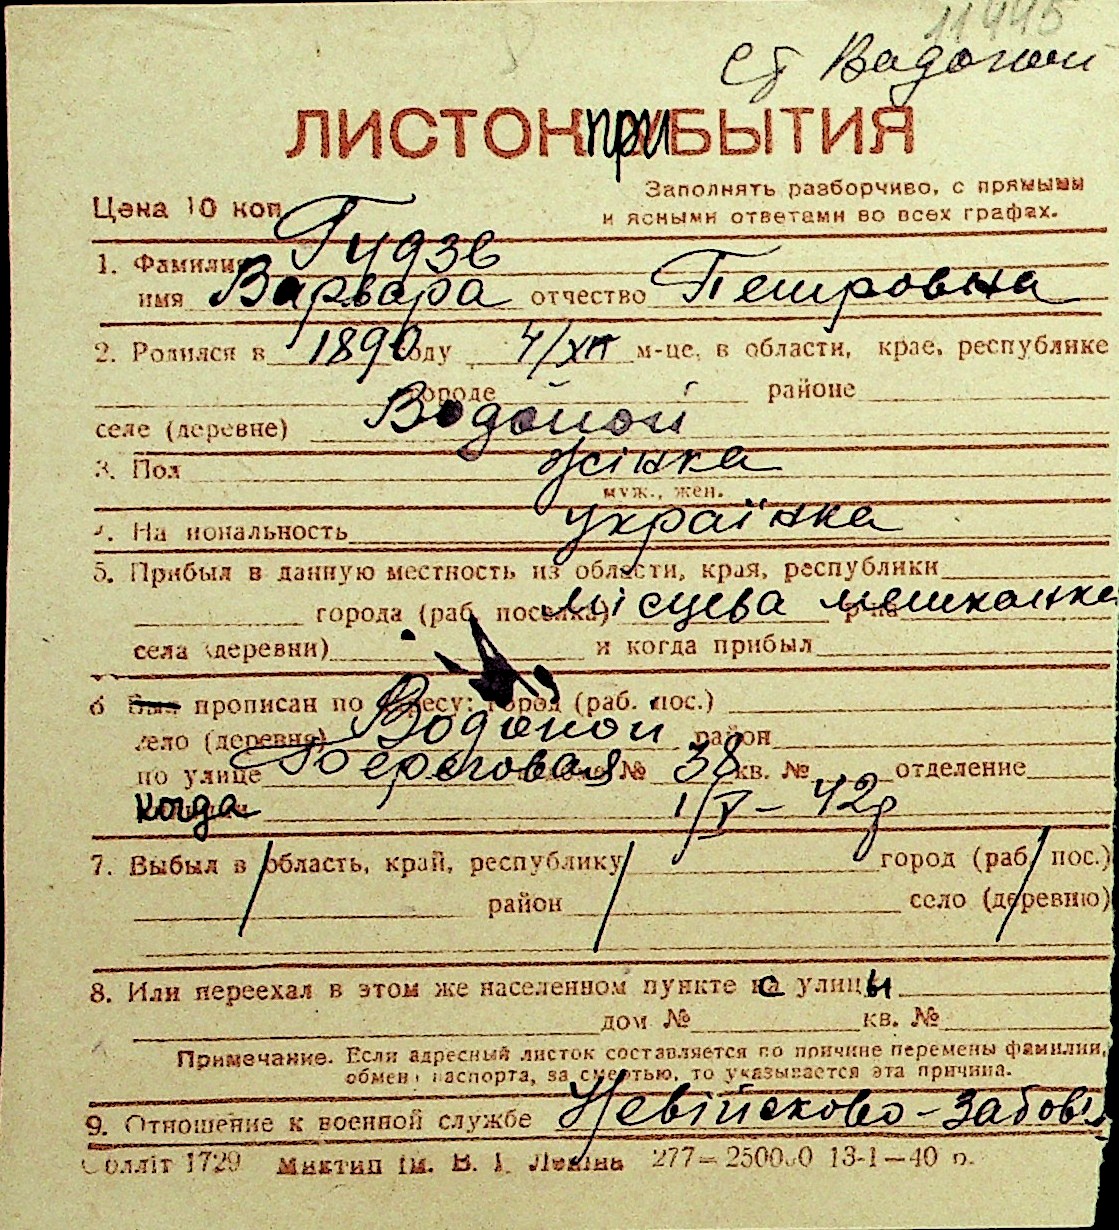 11445
ст Вадопой
ЛИСТОК ПРИБЫТИЯ
Заполнять разборчиво, с прямыми
Цена 10 коп
и ясными ответами во всех графах.
1. Фамилия Гудзь
имя Варвара отчество Петровна
2. Родился в 1890 году 4/XII м-це, в области, крае, республике
городе районе
селе (деревне) Водопой
3. Пол жінка
муж., жен.
4. Национальность українка
5. Прибыл в данную местность из области, края, республики
города (раб. поселка) Місцева мешканка р-на
села (деревни) и когда прибыл
6 Был прописан по адресу: город (раб. пос.)
село (деревня) Водопой район
по улице Береговая № 38 кв. № отделение
когда 1/V – 42 р
7. Выбыл в область, край, республику город (раб. пос.)
район село (деревню)
8. Или переехал в этом же населенном пункте с улицы
дом № кв. №
Примечание. Если адресный листок составляется по причине перемены фамилии,
обмена паспорта, за смертью, то указывается эта причина.
9. Отношение к военной службе Невійсково-забов
Облліт 1729 Миктип ім. В. І. Леніна 277— 250000 13-1—40 р.